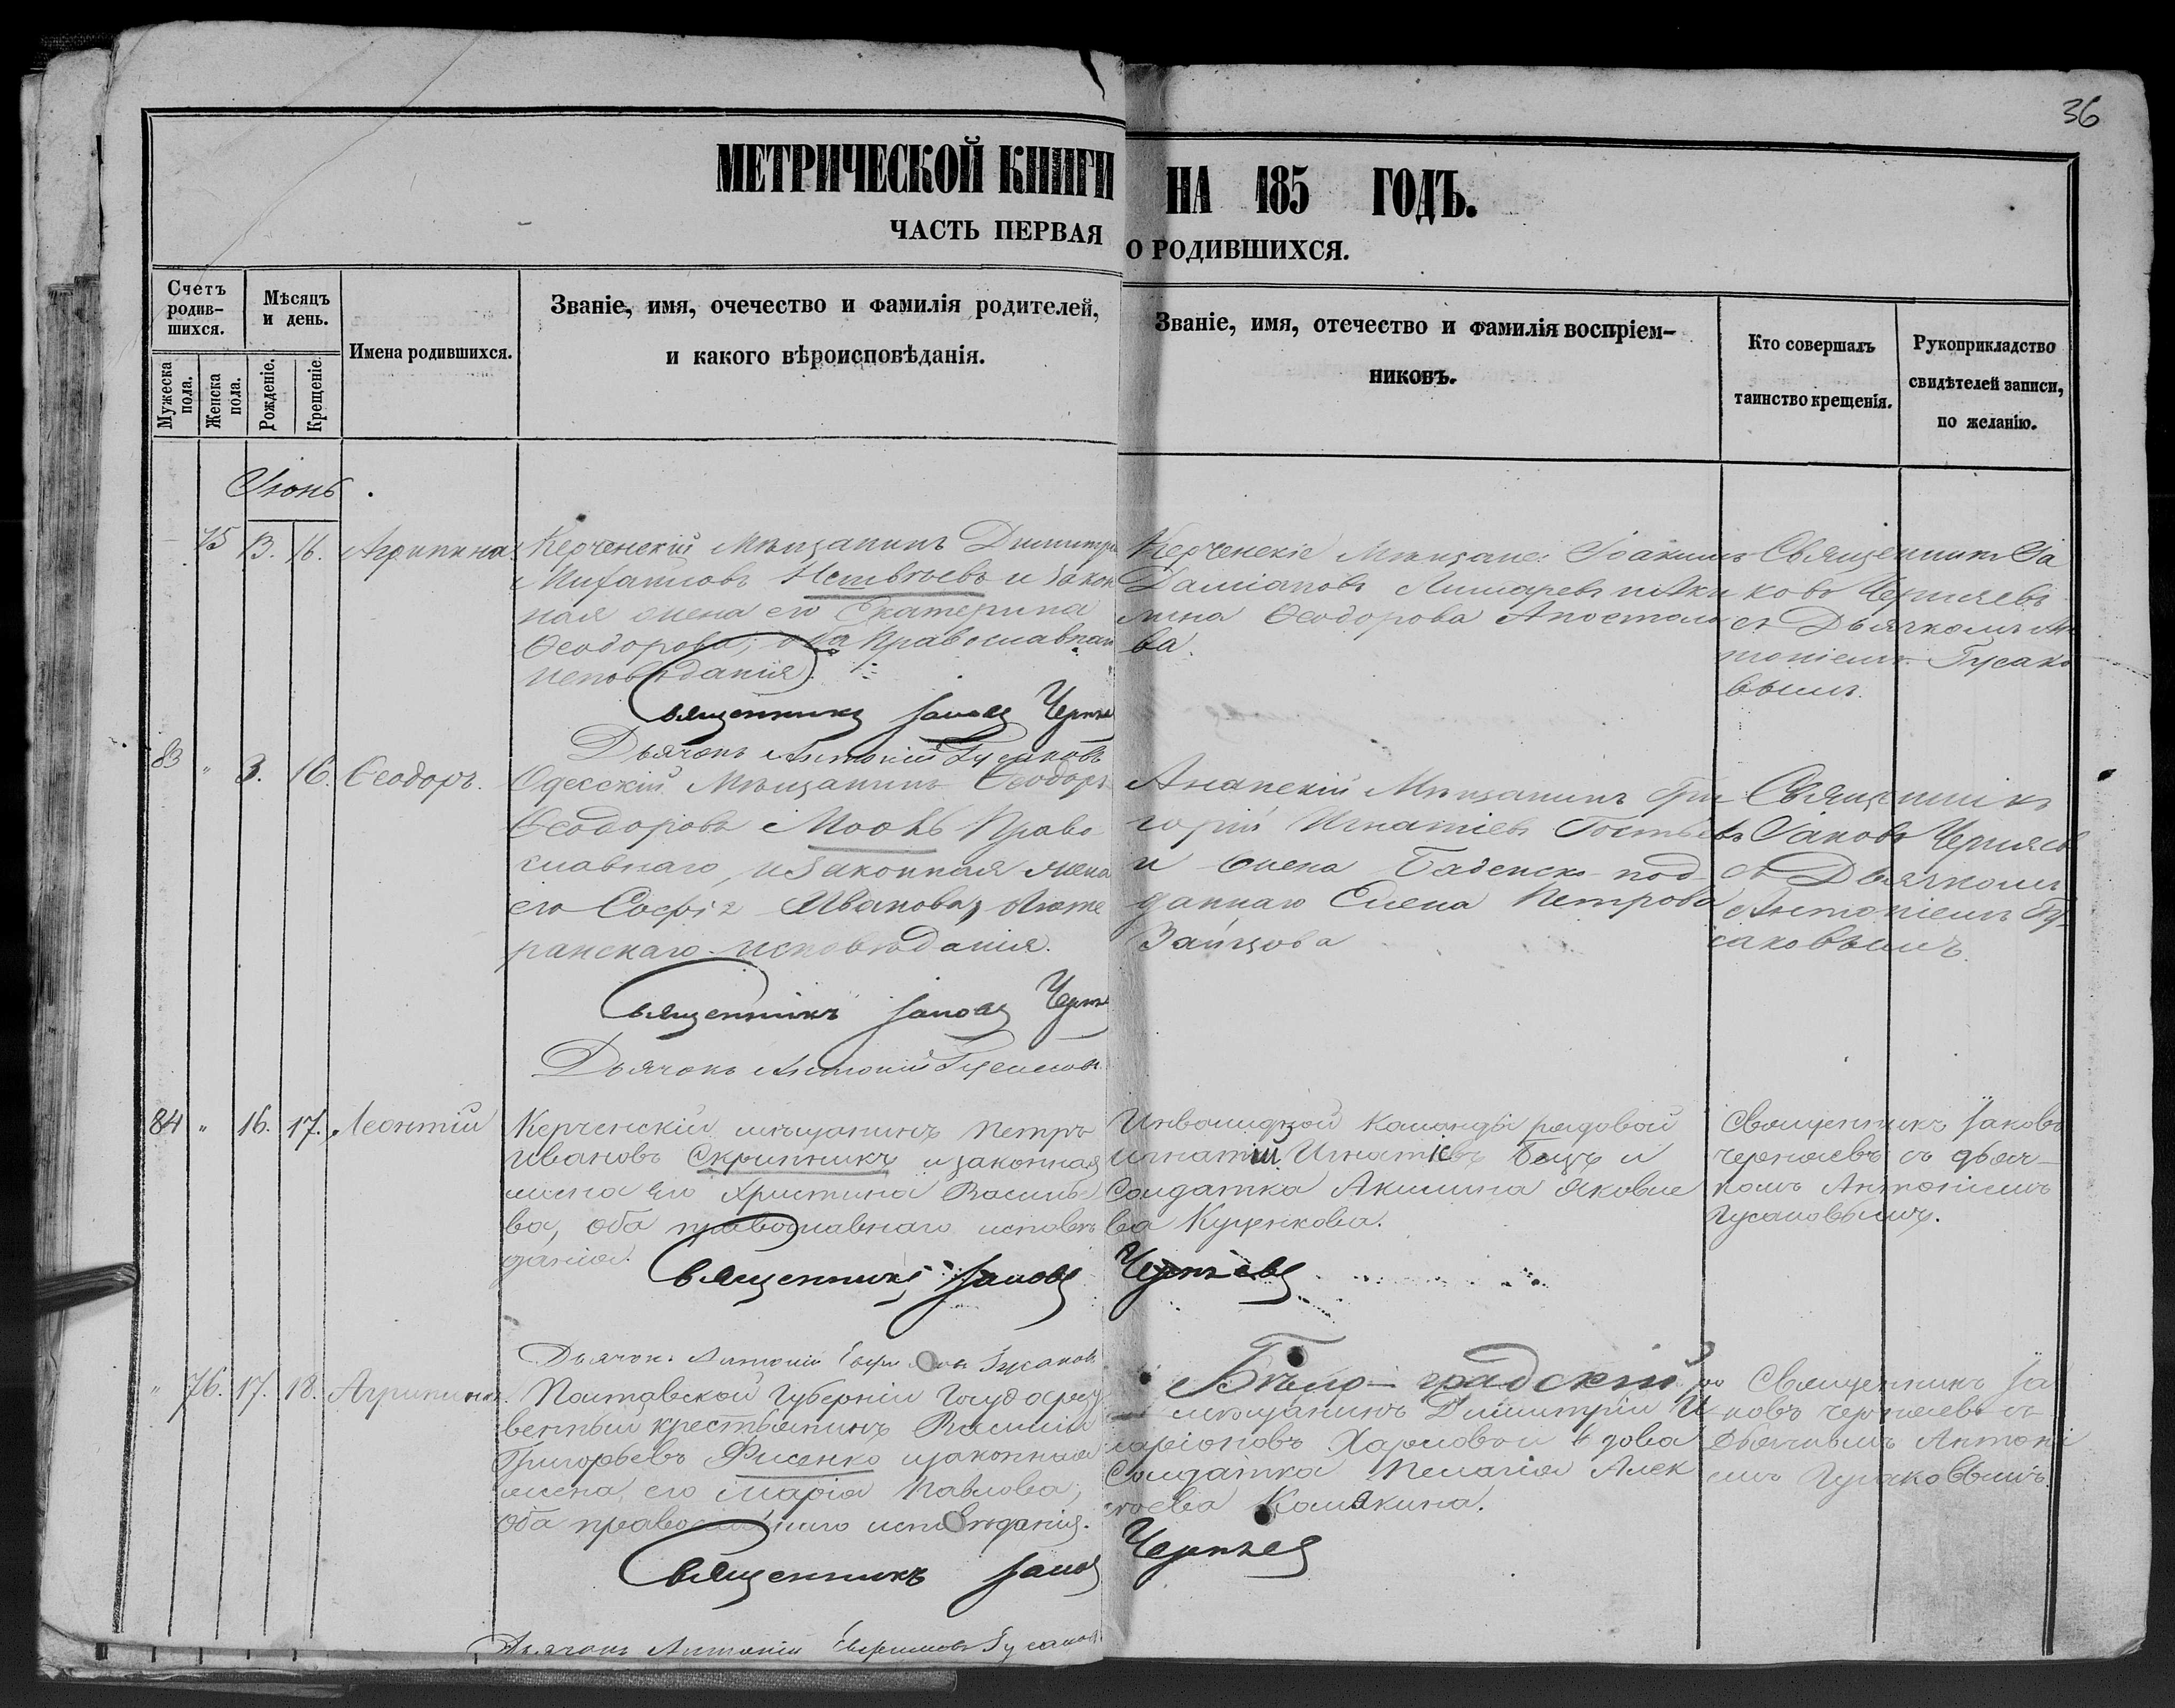 36
МЕТРИЧЕСКОЙ КНИГИ НА 185 ГОДЪ.
ЧАСТЬ ПЕРВАЯ О РОДИВШИХСЯ.
Счетъ родив-
шихся.
Мужеска пола.
Женска пола.
Мѣсяцъ и день.
Рожденіе.
Крещеніе.
Имена родившихся.
Званіе, имя, очечество и фамилія родителей,
и какого вѣроисповѣданія.
Званіе, имя, отечество и фамилія воспріем-
никовъ.
Кто совершалъ
таинство крещенія.
Рукоприкладство
свидѣтелей записи,
по желанію.
Іюнь.
75 13. 16. Агрипина
Керченскій Мѣщанинъ Димитрі
Михаиловъ и закон
ная жена его Екатерина
Ѳеодорова, оба Православнаго
исповѣданія.
Священникъ Іаковъ Черня
Дьячокъ Антоній Гусаковъ
Керченскіе Мѣщане: Іоакимъ
Даміановъ Лимаревъ и Аки
лина Ѳеодорова Апостоло
ва.
Священникъ Іа
ковъ Черняевъ
съ Дьячкомъ Ан
тоніемъ Гусако
вымъ.
83 " 3. 16. Ѳеодоръ.
Одесскій Мѣщанинъ Ѳеодоръ
Ѳеодоровъ Право
славнаго, и законная жена
его Софія Иванова, Люте
ранскаго исповѣданія.
Священникъ Іаковъ Черня
Дьячокъ Антоній Гусаковъ
Анапскій Мѣщанинъ Гри
горій Игнатіевъ Гостьевъ
и жена Баденск. под
даннаго Елена Петрова
Зайцова
Священникъ
Іаковъ Черняевъ
съ Дьячкомъ
Антоніемъ Гу-
саковымъ.
84 " 16. 17. Леонтій
Керченскій мѣщанинъ Петръ
Ивановъ Скрипникъ и законная
жена его Христина Василье
ва, оба православнаго исповѣ
данія.
Священникъ Іаковъ Черняевъ
Дьячокъ Антоній Гусаковъ
Инвалидной команды рядовой
Игнатій Игнатіевъ и
Солдатка Акилина Яковле
ва Куценкова.
Священникъ Іаковъ
Черняевъ съ дьяч-
комъ Антоніемъ
Гусаковымъ.
" 76. 17. 18. Агрипина.
Полтавской Губерніи Государст
венный крестьянинъ Василій
Григорьевъ Фисенко и законная
жена его Марія Павлова,
оба православнаго исповѣданія.
Священникъ Іаковъ Черняев
Дьячокъ Антоній Евфимовъ Гусаковъ
Бѣло-градскій
мѣщанинъ Димитрій И
ларіоновъ и вдова
Солдатка Пелагія Алек
сѣева Калякина.
Священникъ Іа
ковъ Черняевъ съ
Дьячкомъ Антоні
емъ Гусаковымъ.